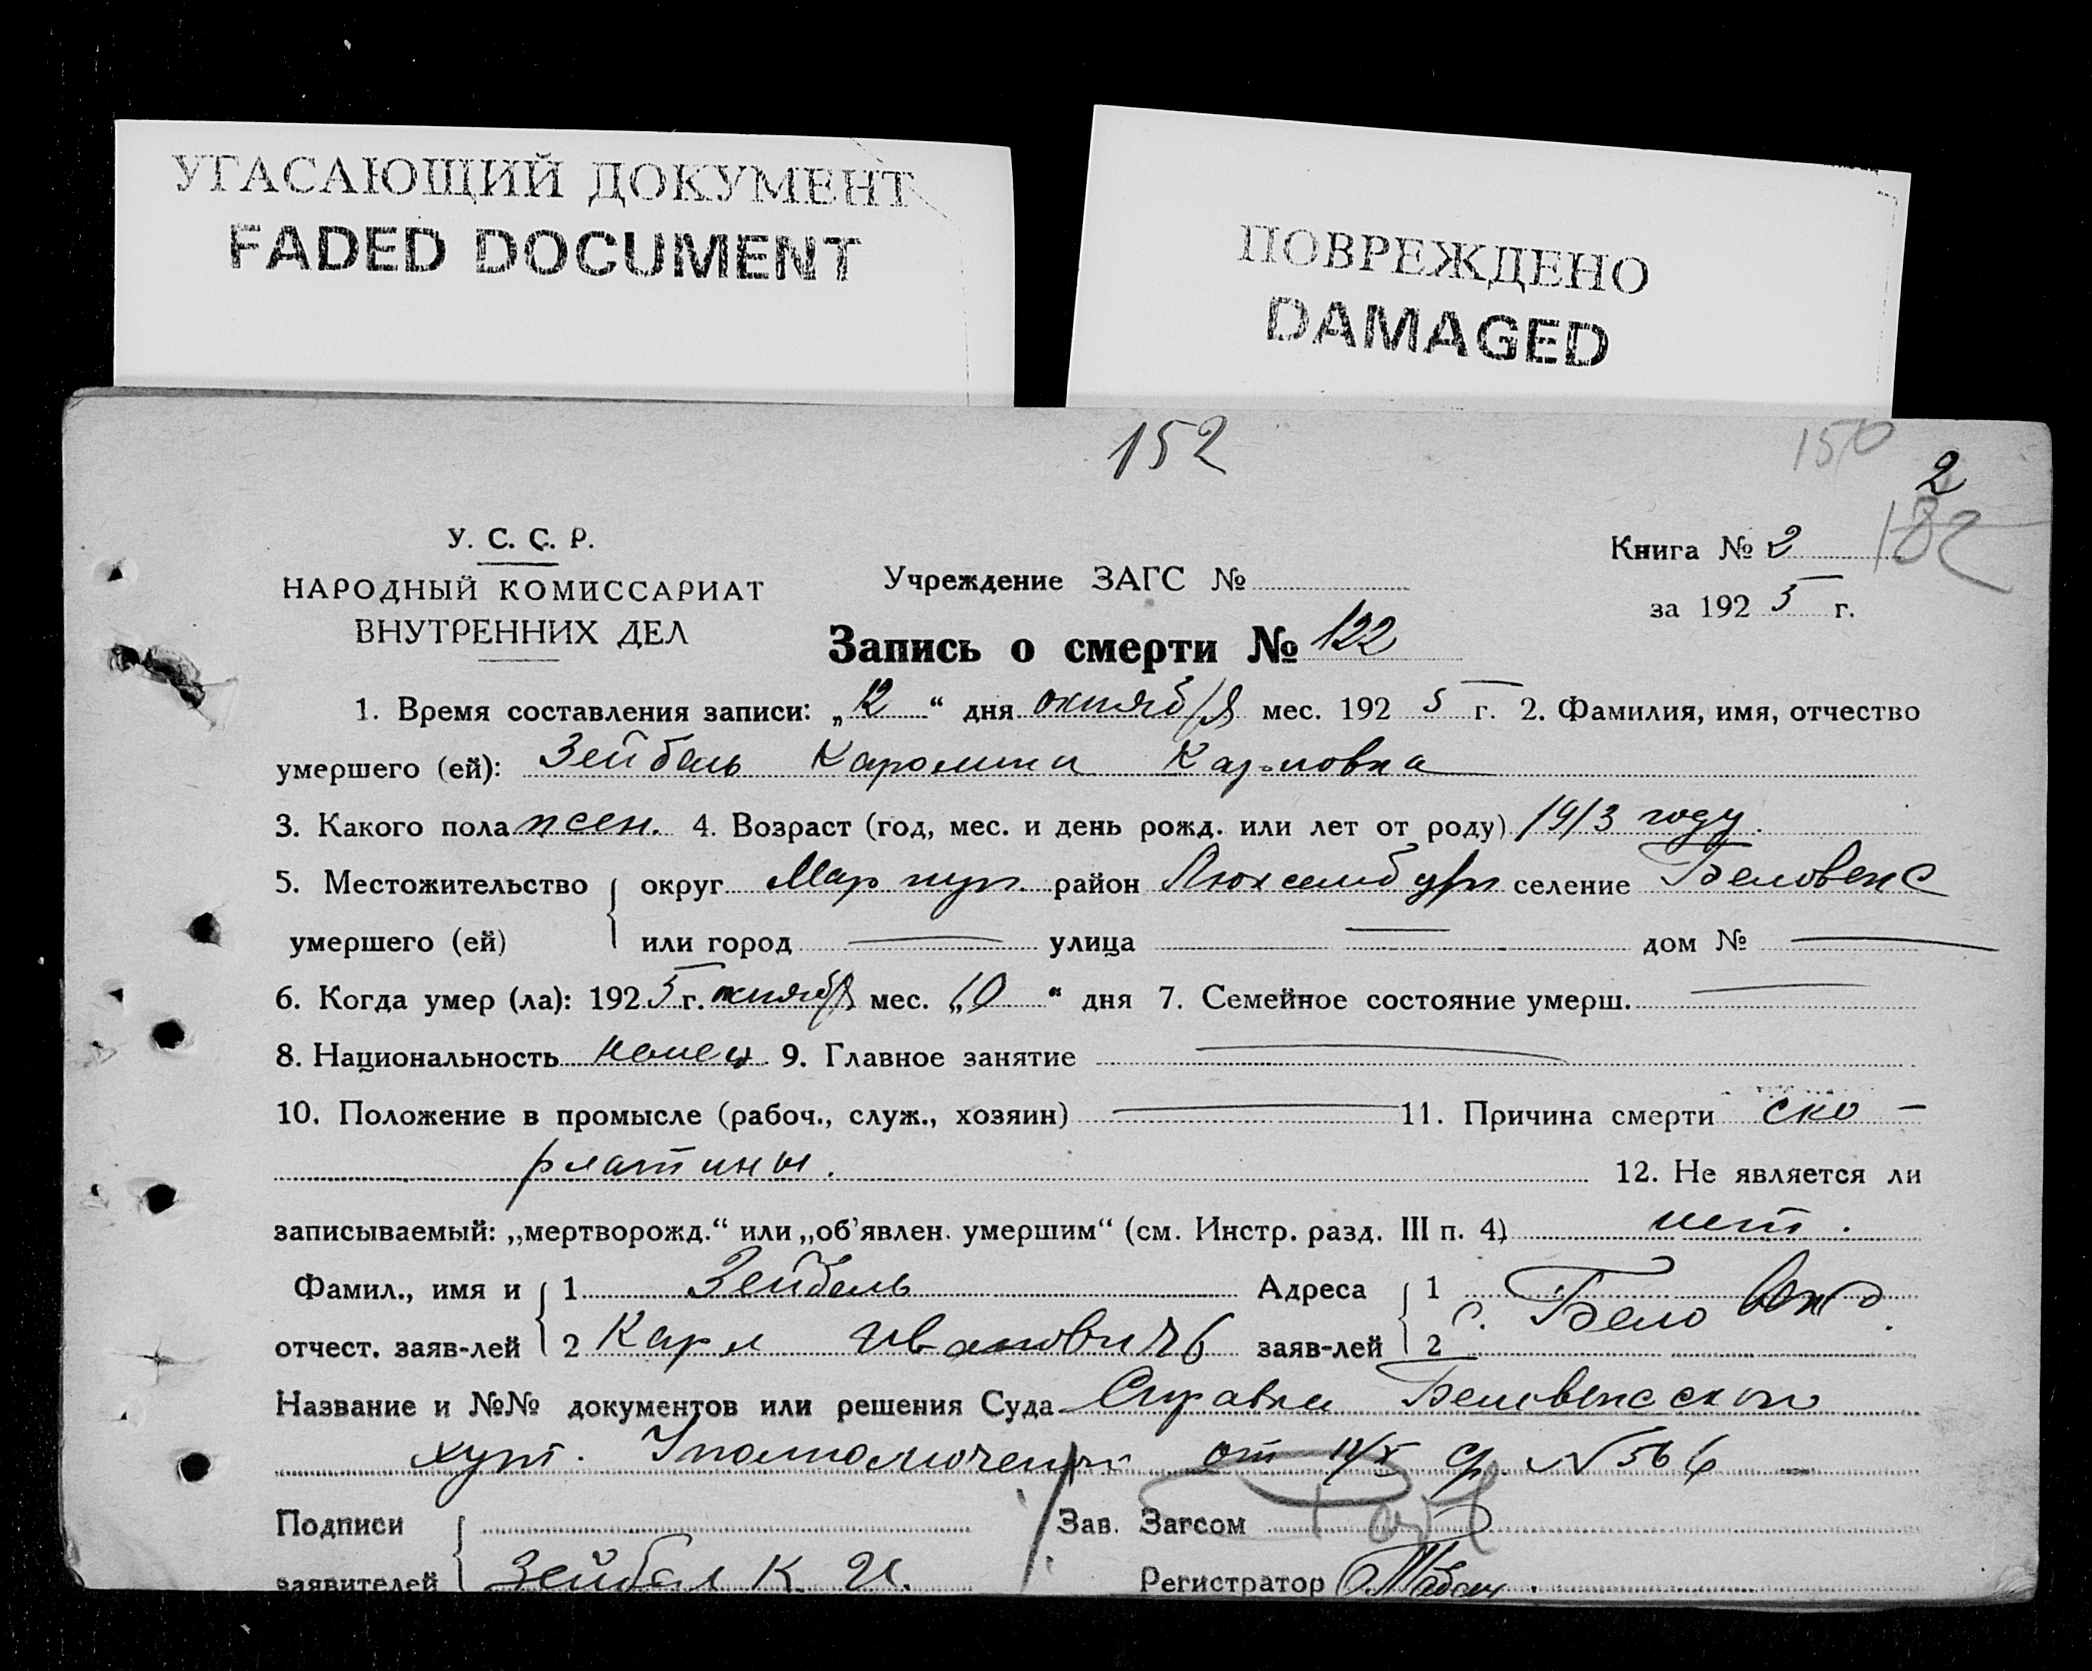 УГАСАЮЩИЙ ДОКУМЕНТ
FADED DOCUMENT
ПОВРЕЖДЕНО
DAMAGED
152
150
2
182
У. С. С. Р.
НАРОДНЫЙ КОМИССАРИАТ
ВНУТРЕННИХ ДЕЛ
Учреждение ЗАГС №
Книга № 2
за 192 5 г.
Запись о смерти № 122
1. Время составления записи: „12“ дня октября мес. 192 5 г. 2. Фамилия, имя, отчество
умершего (ей): Зейбель Каролина Карловна
3. Какого пола жен. 4. Возраст (год, мес. и день рожд. или лет от роду) 1913 году.
5. Местожительство округ Мариуп. район Люксембург селение Беловеж
умершего (ей) или город — улица — дом № —
6. Когда умер (ла): 192 5 г. октября мес. „10“ дня 7. Семейное состояние умерш. —
8. Национальность немец 9. Главное занятие —
10. Положение в промысле (рабоч., служ., хозяин) — 11. Причина смерти ска-
рлатины. 12. Не является ли
записываемый: „мертворожд.“ или „об'явлен. умершим“ (см. Инстр. разд. III п. 4) нет.
Фамил., имя и 1 Зейбель Адреса 1 с. Беловеж.
отчест. заяв-лей 2 Карл Ивановичь заяв-лей 2
Название и №№ документов или решения Суда Справка
хут. от 12/X № 566
Подписи Зав. Загсом
заявителей Зейбел К. И. Регистратор